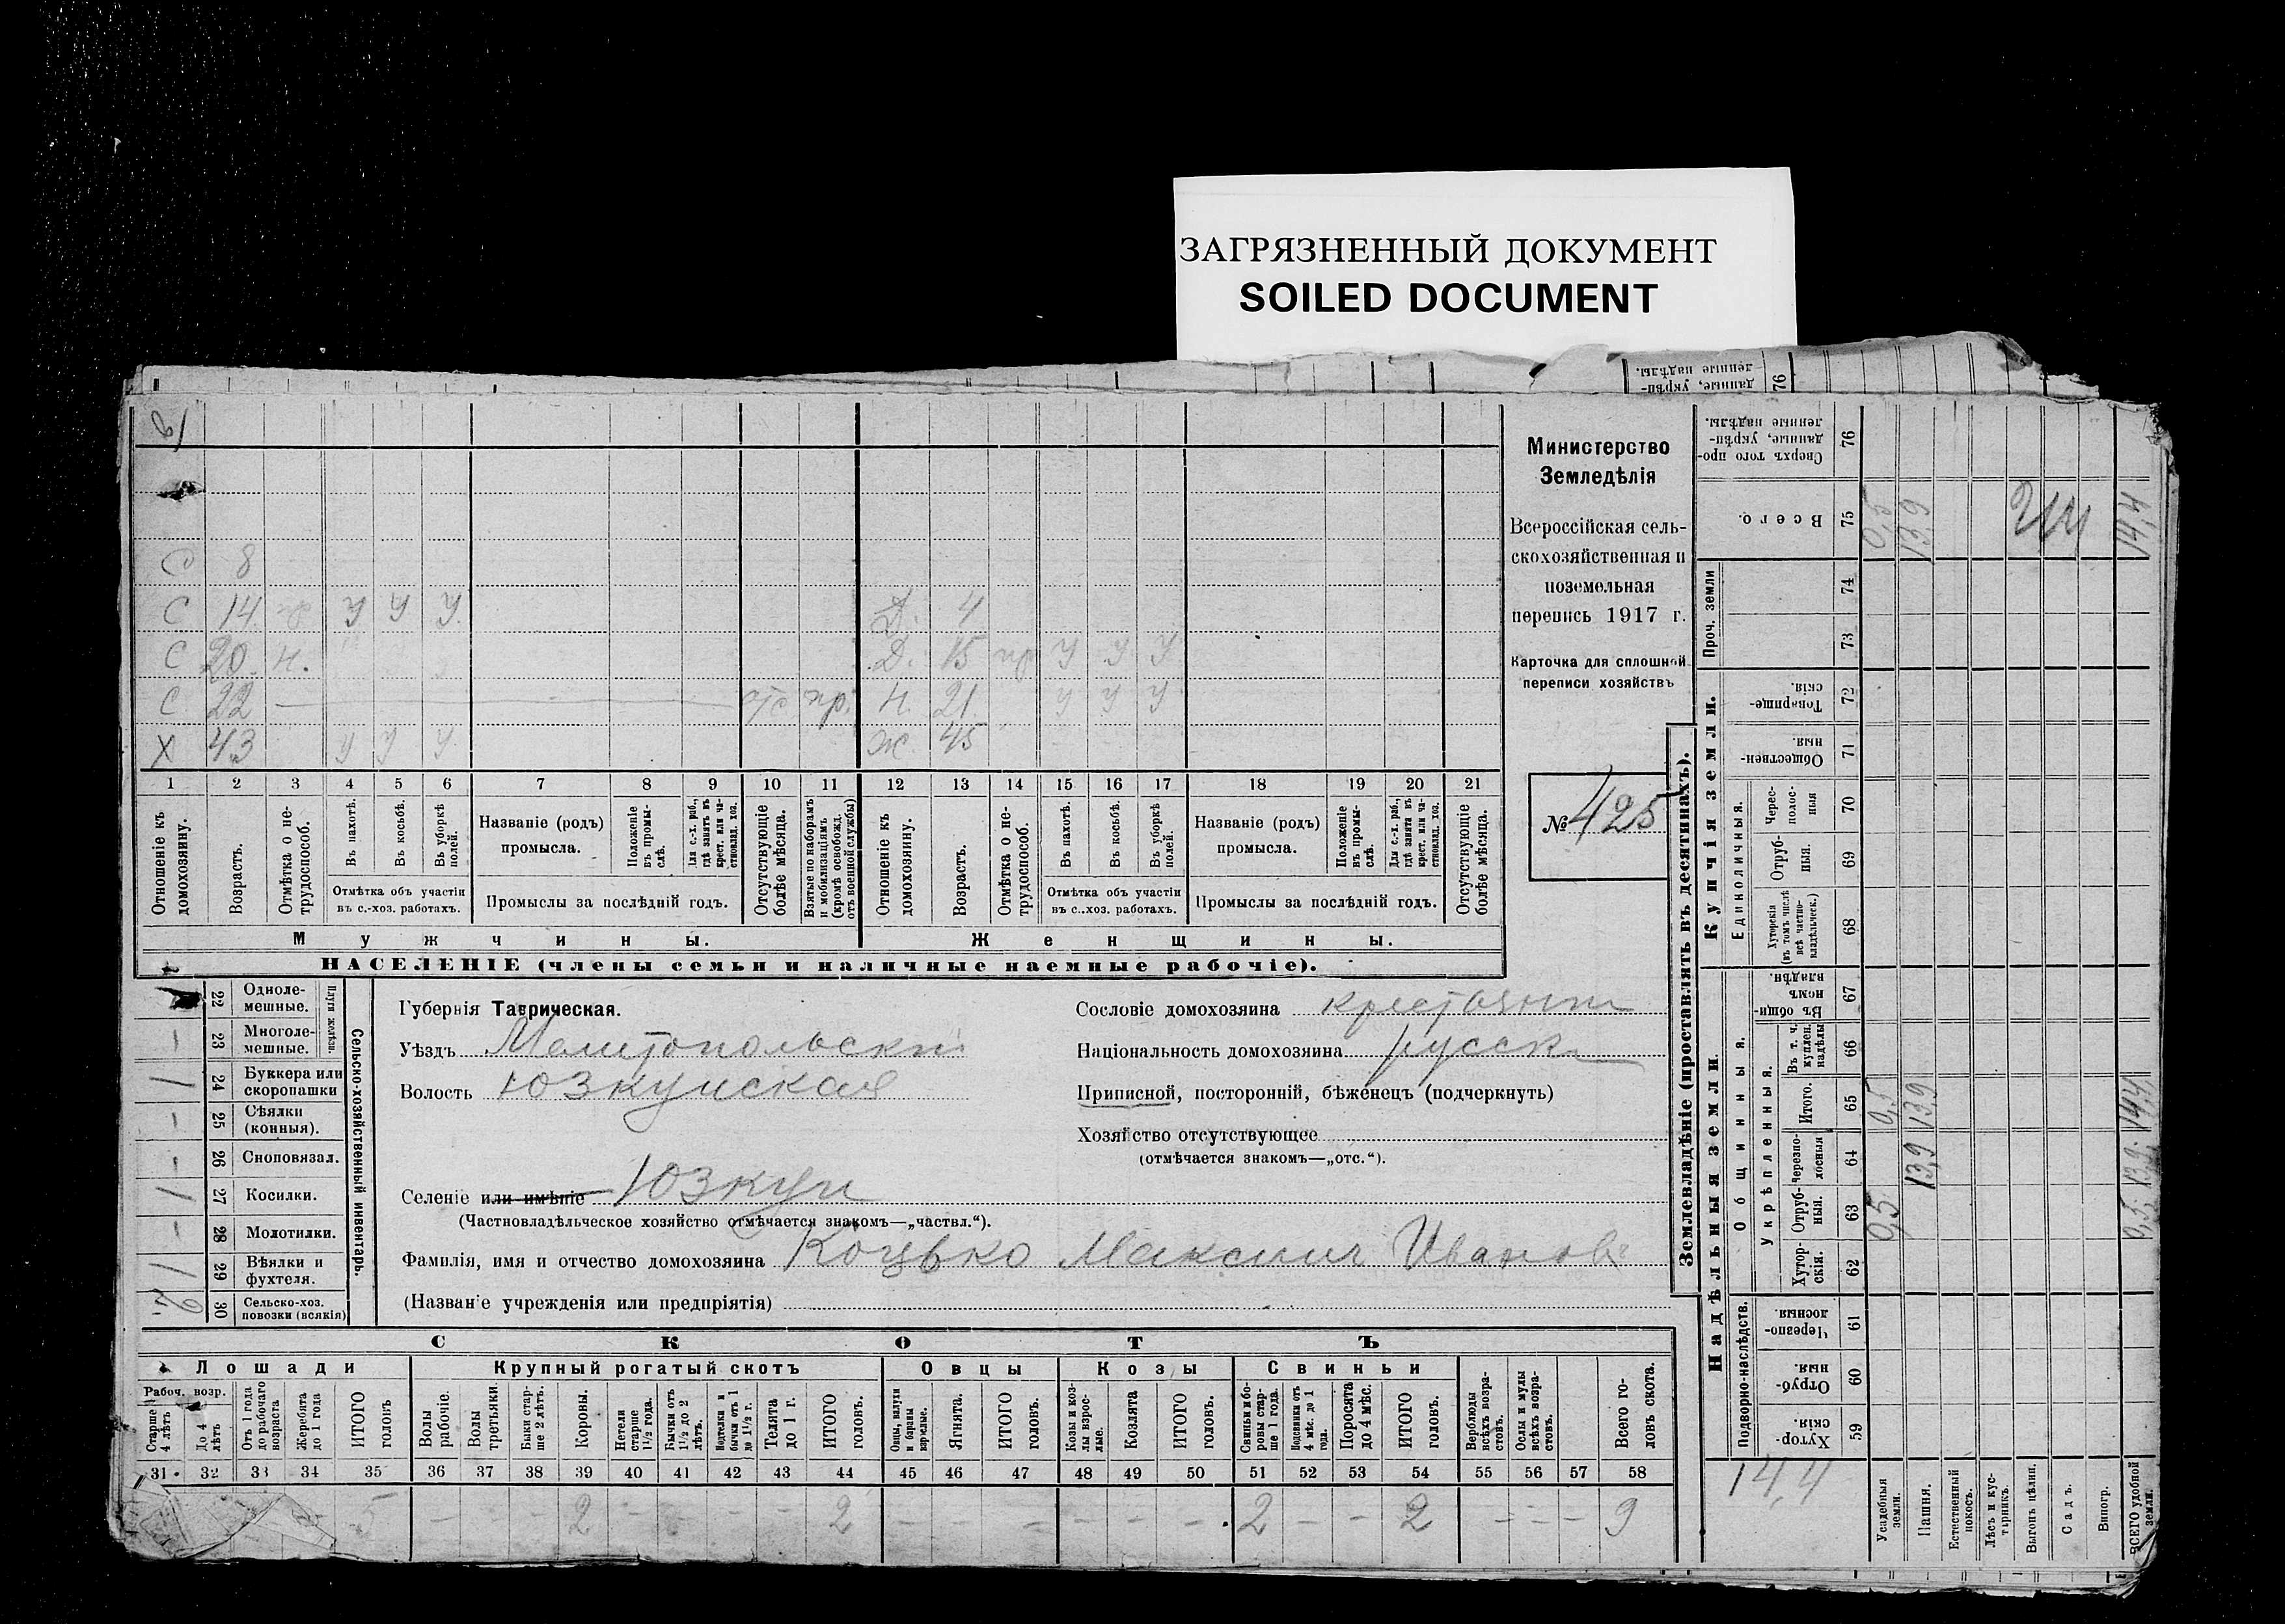 ЗАГРЯЗНЕННЫЙ ДОКУМЕНТ
SOILED DOCUMENT
данные, укрѣп-
ленные надѣлы.
76
С 8
С 14 У У У Д. 4
С 20 Н. Д. 15 У У У
С 22 отс пр. Н. 21 У У У
Х 43 У У У Ж 45
1 2 3 4 5 6 7 8 9 10 11 12 13 14 15 16 17 18 19 20 21
Отношеніе къ домохозяину.
Возрастъ.
Отмѣтка о не-трудоспособ.
Въ пахотѣ.
Въ косьбѣ.
Въ уборкѣ полей.
Отмѣтка объ участіи въ с.-хоз. работахъ.
Названіе (родъ) промысла.
Положеніе въ промы-слѣ.
Для с.-х. раб., гдѣ занятъ въ крест. или ча-стновлад. хоз.
Промыслы за послѣдній годъ.
Отсутствующіе болѣе мѣсяца.
Взятые по наборамъ и мобилизаціямъ (кромѣ освобожд. отъ военной службы)
Отношеніе къ домохозяину.
Возрастъ.
Отмѣтка о не-трудоспособ.
Въ пахотѣ.
Въ косьбѣ.
Въ уборкѣ полей.
Отмѣтка объ участіи въ с..хоз. работахъ.
Названіе (родъ) промысла.
Положеніе въ промы-слѣ.
Для с.-х. раб., гдѣ занята въ крест. или ча-стновлад. хоз.
Промыслы за послѣдній годъ.
Отсутствующіе болѣе мѣсяца.
Мужчины.
Женщины.
НАСЕЛЕНІЕ (члены семьи и наличные наемные рабочіе).
Министерство
Земледѣлія
Всероссійская сель-
скохозяйственная и
поземельная
перепись 1917 г.
Карточка для сплошной
переписи хозяйствъ
№ 425
22 Одноле-мешные.
23 Многоле-мешные. —
Плуги желѣзн.
24 Буккера или скоропашки 1
25 Сѣялки (конныя). —
26 Сноповязал. —
27 Косилки. 1
28 Молотилки. —
29 Вѣялки и фухтеля. 1
30 Сельско-хоз. повозки (всякія)
Сельско-хозяйственный инвентарь.
Губернія Таврическая.
Уѣздъ Мелитопольскій
Волость Юзкуйская
Селеніе или имѣніе Юзкуи
(Частновладѣльческое хозяйство отмѣчается знакомъ—„частвл.“).
Фамилія, имя и отчество домохозяина Коцько Максим Иванов
(Названіе учрежденія или предпріятія)
Сословіе домохозяина крестьянин
Національность домохозяина русск
Приписной, посторонній, бѣженец (подчеркнуть)
Хозяйство отсутствующее
(отмѣчается знакомъ—„отс.“).
СКОТЪ
Лошади
Крупный рогатый скотъ
Овцы
Козы
Свиньи
Рабоч. возр.
Старше 4 лѣтъ
До 4 лѣтъ
Отъ 1 года до рабочаго возраста
Жеребята до 1 года
ИТОГО головъ
Волы рабочіе.
Волы третьяки.
Быки стар-ше 2 лѣтъ.
Коровы.
Нетели старше 1½ года.
Бычки отъ 1½ до 2 лѣтъ.
Подтелки и бычки отъ 1 до 1½ г.
Телята до 1 г.
ИТОГО головъ.
Овцы, валухи и бараны взрослые.
Ягнята.
ИТОГО головъ.
Козы и коз-лы взрос-лые.
Козлята
ИТОГО головъ.
Свиньи и бо-ровы стар-ше 1 года.
Подсвинки отъ 4 мѣс. до 1 года.
Поросята до 4 мѣс.
ИТОГО головъ.
Верблюды всѣхъ возра-стовъ.
Ослы и мулы всѣхъ возра-стовъ.
Всего го-ловъ скота.
31 32 33 34 35 36 37 38 39 40 41 42 43 44 45 46 47 48 49 50 51 52 53 54 55 56 57 58
— 5 — — — 2 — — — — 2 — — — — — — 2 — — 2 — — — 9
Землевладѣніе (проставлять въ десятинахъ).
Надѣльныя земли.
Купчія земли.
Проч. земли
Подворно-наслѣдств.
Общинныя.
Укрѣпленныя.
Единоличныя.
Хутор-скія 59
Отруб-ныя. 60
Черезпо-лосныя. 61
Хутор-скія. 62
Отруб-ныя. 63
Черезпо-лосныя 64
Итого. 65
Въ т. ч. куплен. надѣлы 66
Въ общин-номъ владѣн. 67
Хуторскія (въ томъ числѣ всѣ частно-владѣльческ.) 68
Отруб-ныя. 69
Черес-полос-ныя 70
Обществен-ныя. 71
Товарище-скія. 72
73
74
Всего. 75
Сверхъ того про-данные, укрѣп-ленные надѣлы. 76
14,4
Усадебныя земли. 0,5 0,5 0,5
Пашня. 13,9 13,9 13,9
Естественный покосъ.
Лѣсъ и кус-тарникъ.
Выгонъ цѣлин.
Садъ.
Виногр.
ВСЕГО удобной земли. 0,5 13,9 14,4 14,4